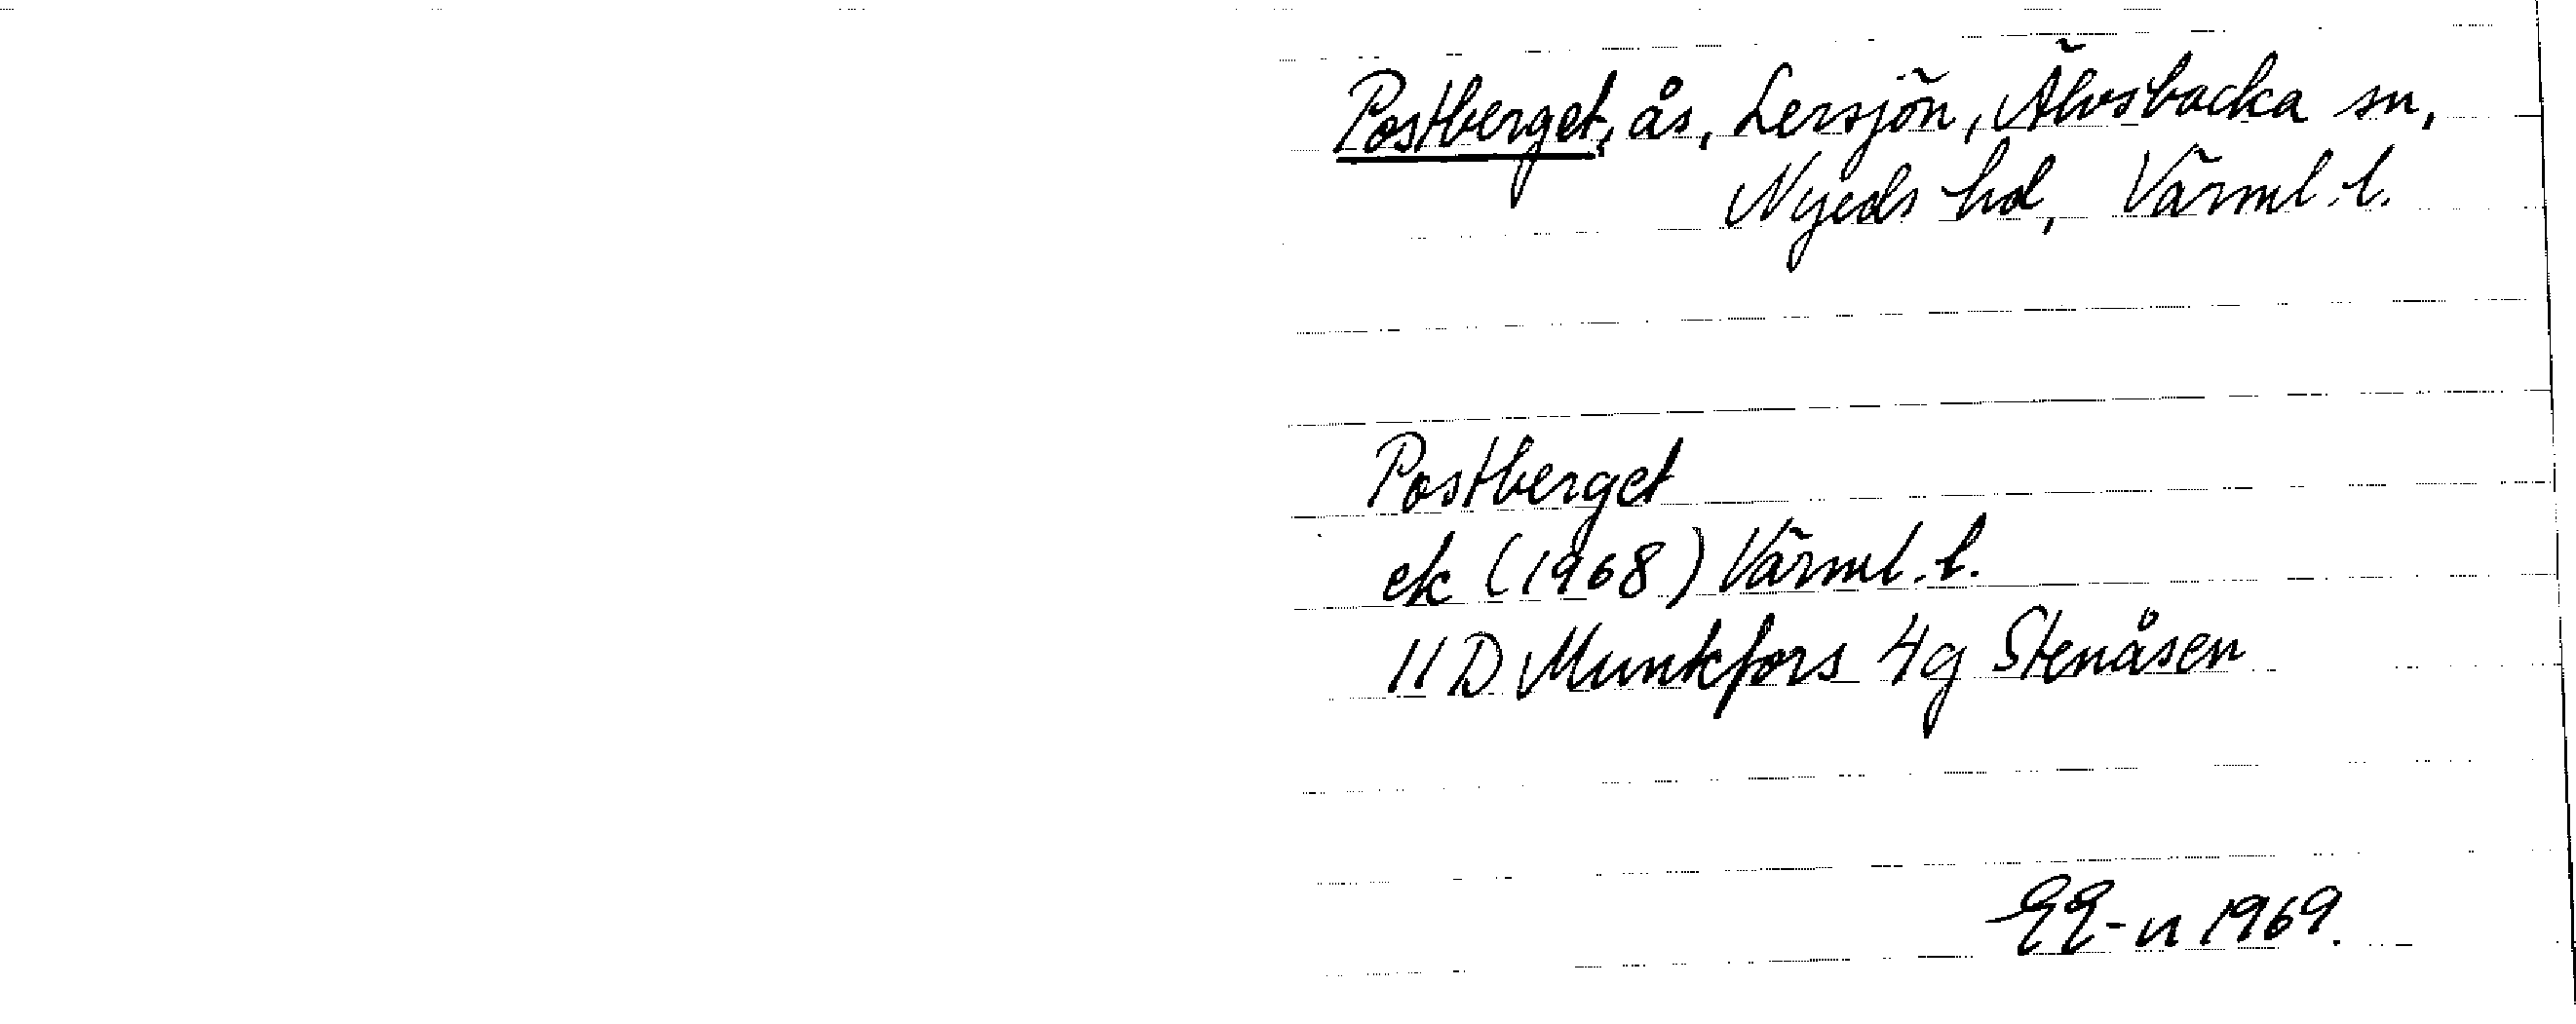 Postberget, ås, Lersjön, Älvsbacka sn,
Nyeds hd, Värml. l.
Postberget
ek (1968) Värml. l.
11 D Munkfors 4g Stenåsen
EE-n 1969.